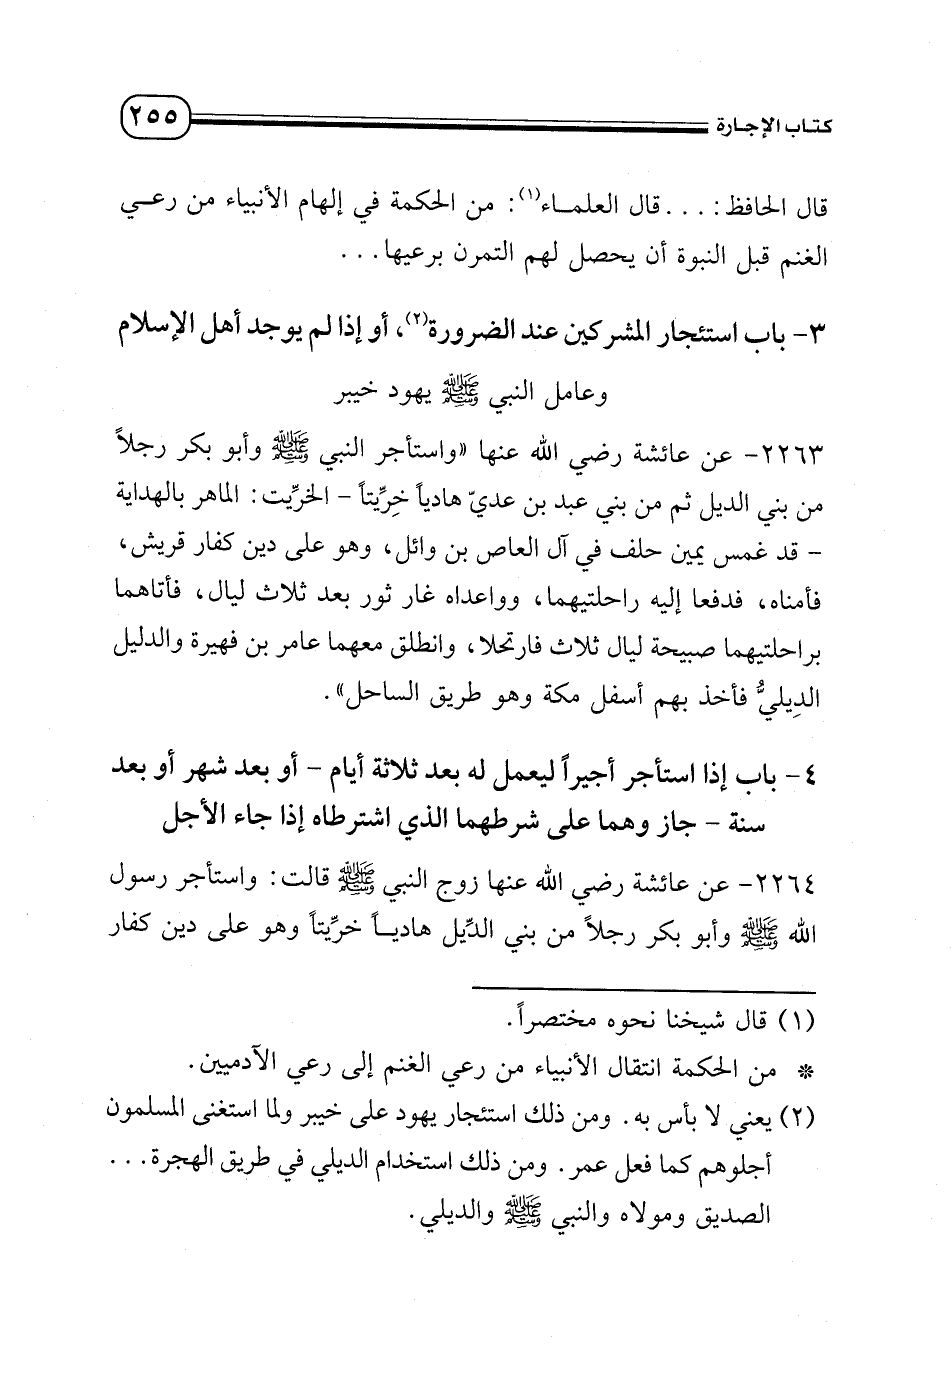 كتاب الإجارة ٢٥٥
قال الحافظ: . . . قال العلماء(١): من الحكمة في إلهام الأنبياء من رعي
الغنم قبل النبوة أن يحصل لهم التمرن برعيها. . .
٣- باب استئجار المشركين عند الضرورة(٢)، أو إذا لم يوجد أهل الإسلام
وعامل النبي ﷺ يهود خيبر
٢٢٦٣- عن عائشة رضي الله عنها «واستأجر النبي ﷺ وأبو بكر رجلاً
من بني الديل ثم من بني عبد بن عديّ هادياً خِرِّيتاً - الخرِّيت: الماهر بالهداية
- قد غمس يمين حلف في آل العاص بن وائل، وهو على دين كفار قريش،
فأمناه، فدفعا إليه راحلتيهما، وواعداه غار ثور بعد ثلاث ليال، فأتاهما
براحلتيهما صبيحة ليال ثلاث فارتحلا، وانطلق معهما عامر بن فهيرة والدليل
الدِيليُّ فأخذ بهم أسفل مكة وهو طريق الساحل».
٤- باب إذا استأجر أجيراً ليعمل له بعد ثلاثة أيام - أو بعد شهر أو بعد
سنة - جاز وهما على شرطهما الذي اشترطاه إذا جاء الأجل
٢٢٦٤- عن عائشة رضي الله عنها زوج النبي ﷺ قالت: واستأجر رسول
الله ﷺ وأبو بكر رجلاً من بني الدِّيل هادياً خرِّيتاً وهو على دين كفار
(١) قال شيخنا نحوه مختصراً.
* من الحكمة انتقال الأنبياء من رعي الغنم إلى رعي الآدميين.
(٢) يعني لا بأس به. ومن ذلك استئجار يهود على خيبر ولما استغنى المسلمون
أجلوهم كما فعل عمر. ومن ذلك استخدام الديلي في طريق الهجرة. . .
الصديق ومولاه والنبي ﷺ والديلي.